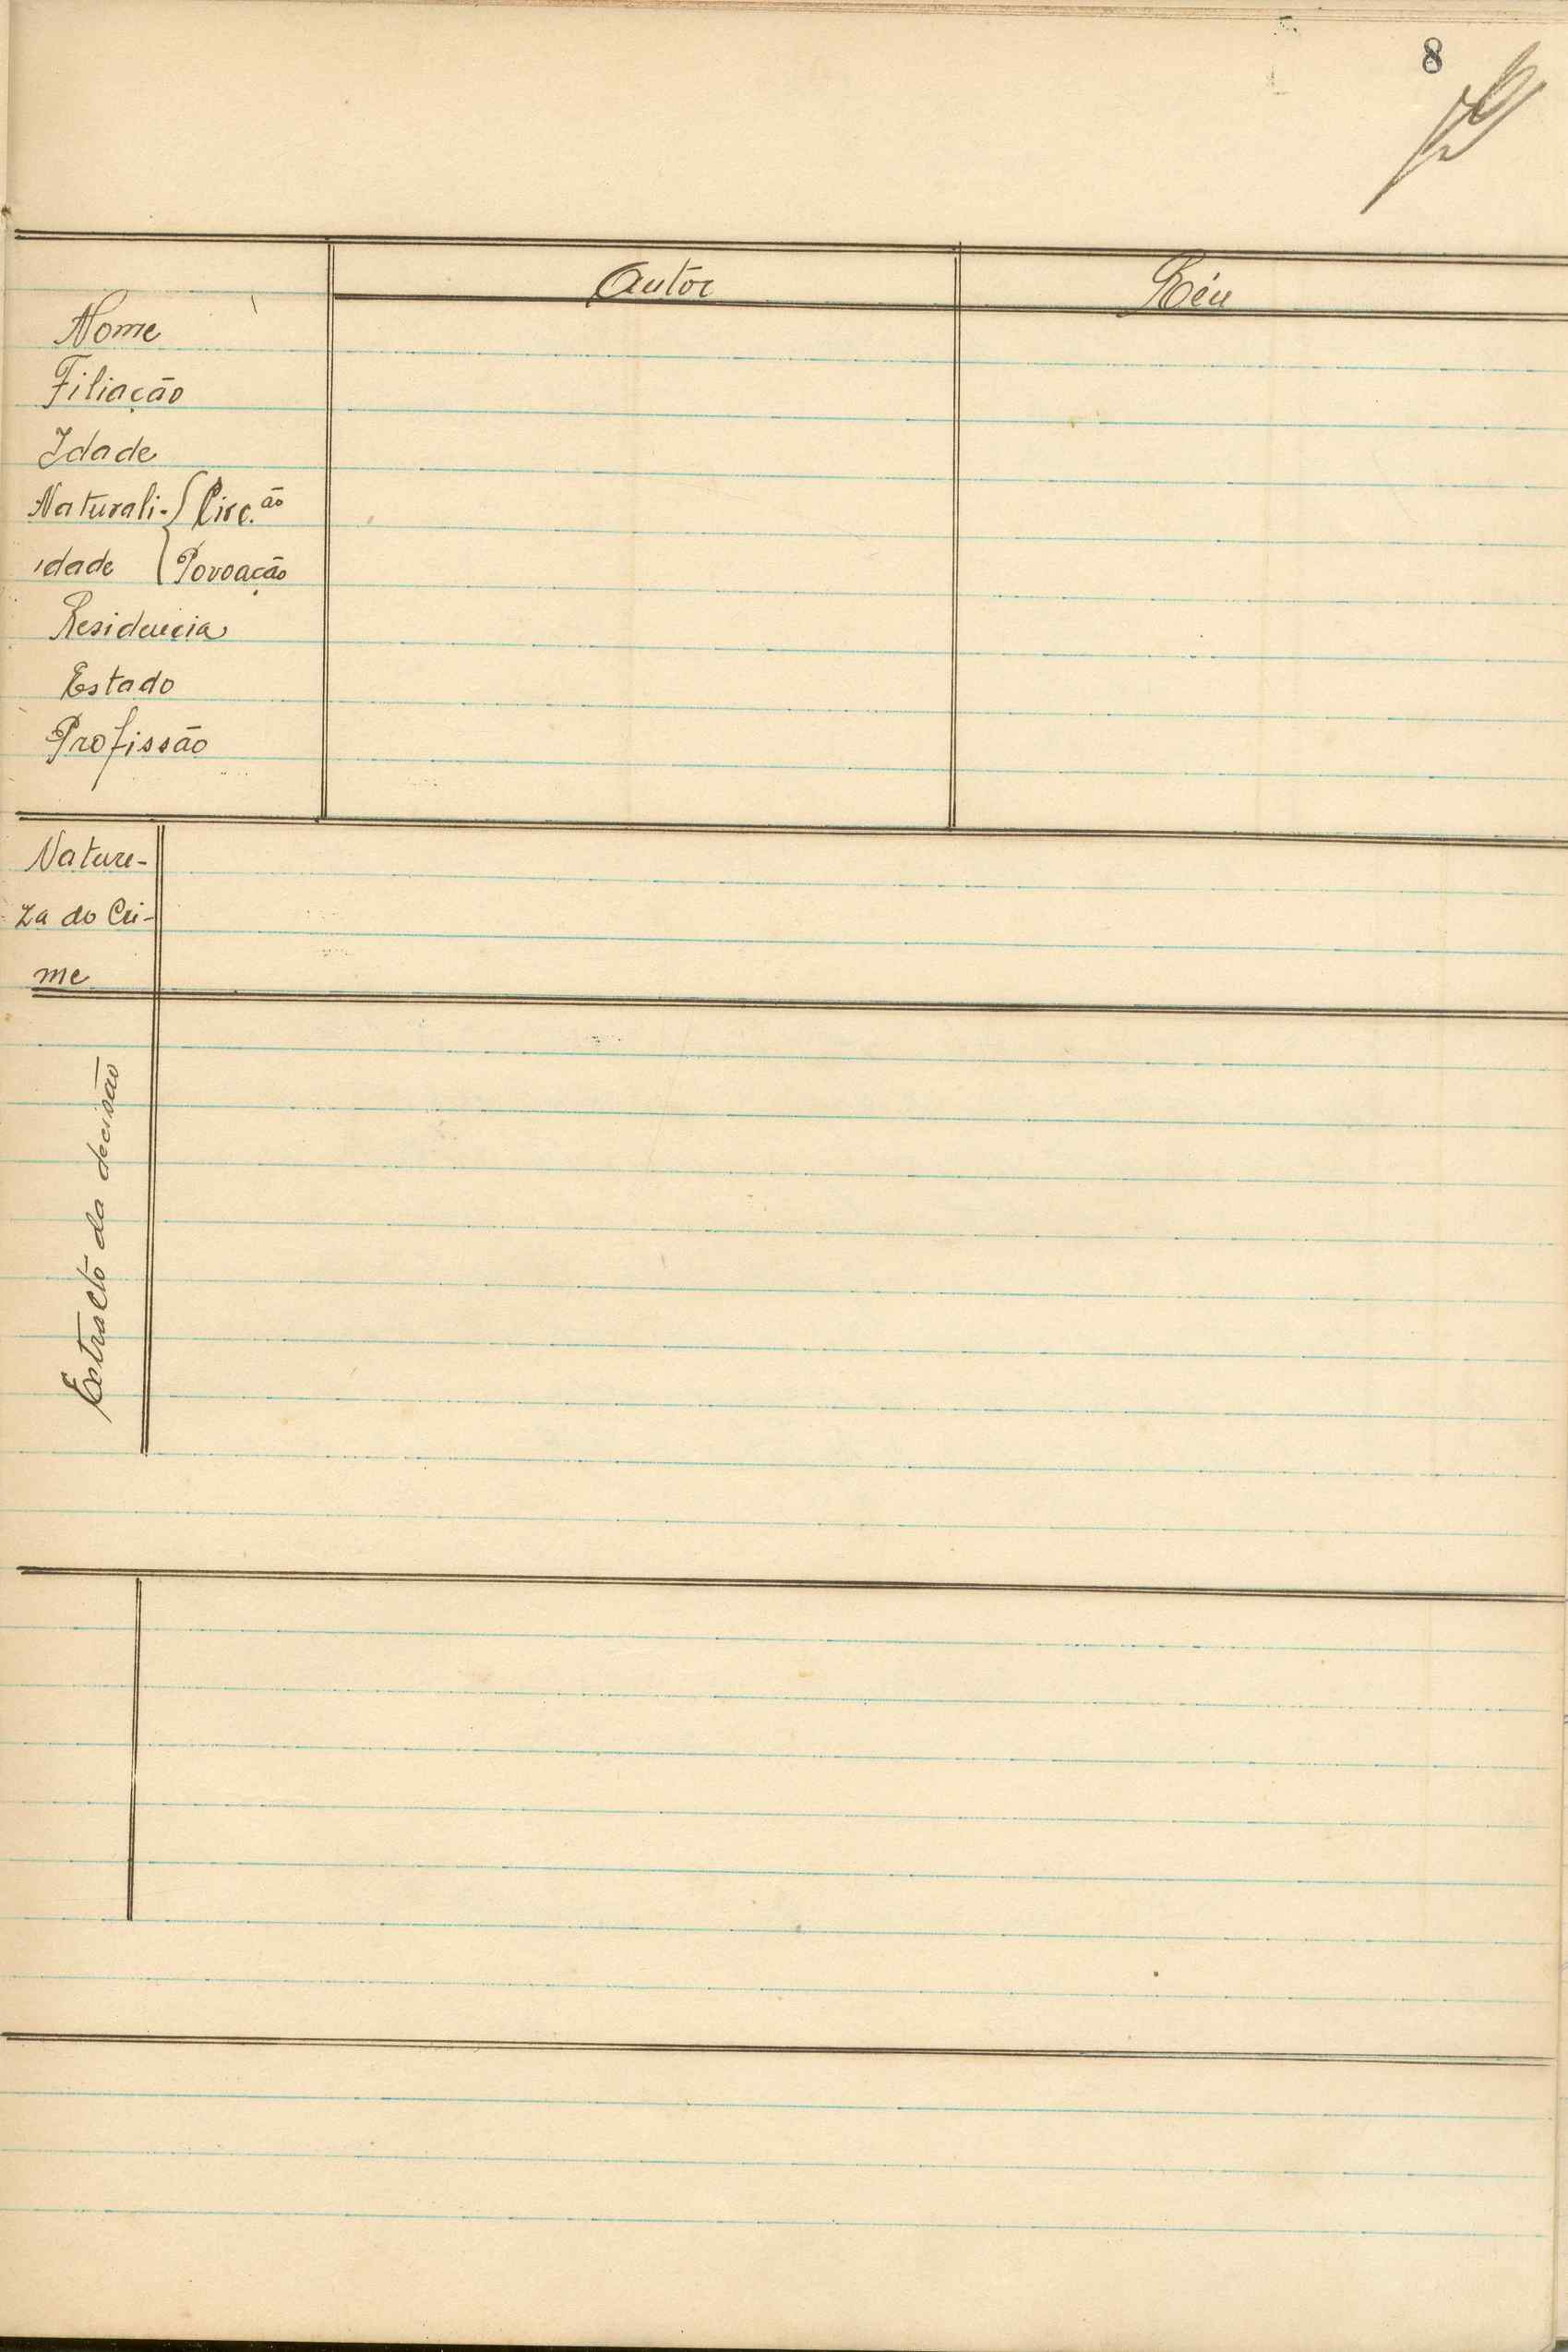 8
Autor Réu
Nome
Filiação
Idade
Naturali- { Circ.ão
idade { Povoação
Residencia
Estado
Profissão
Nature-
za do Cri-
me
Extracto da decisão